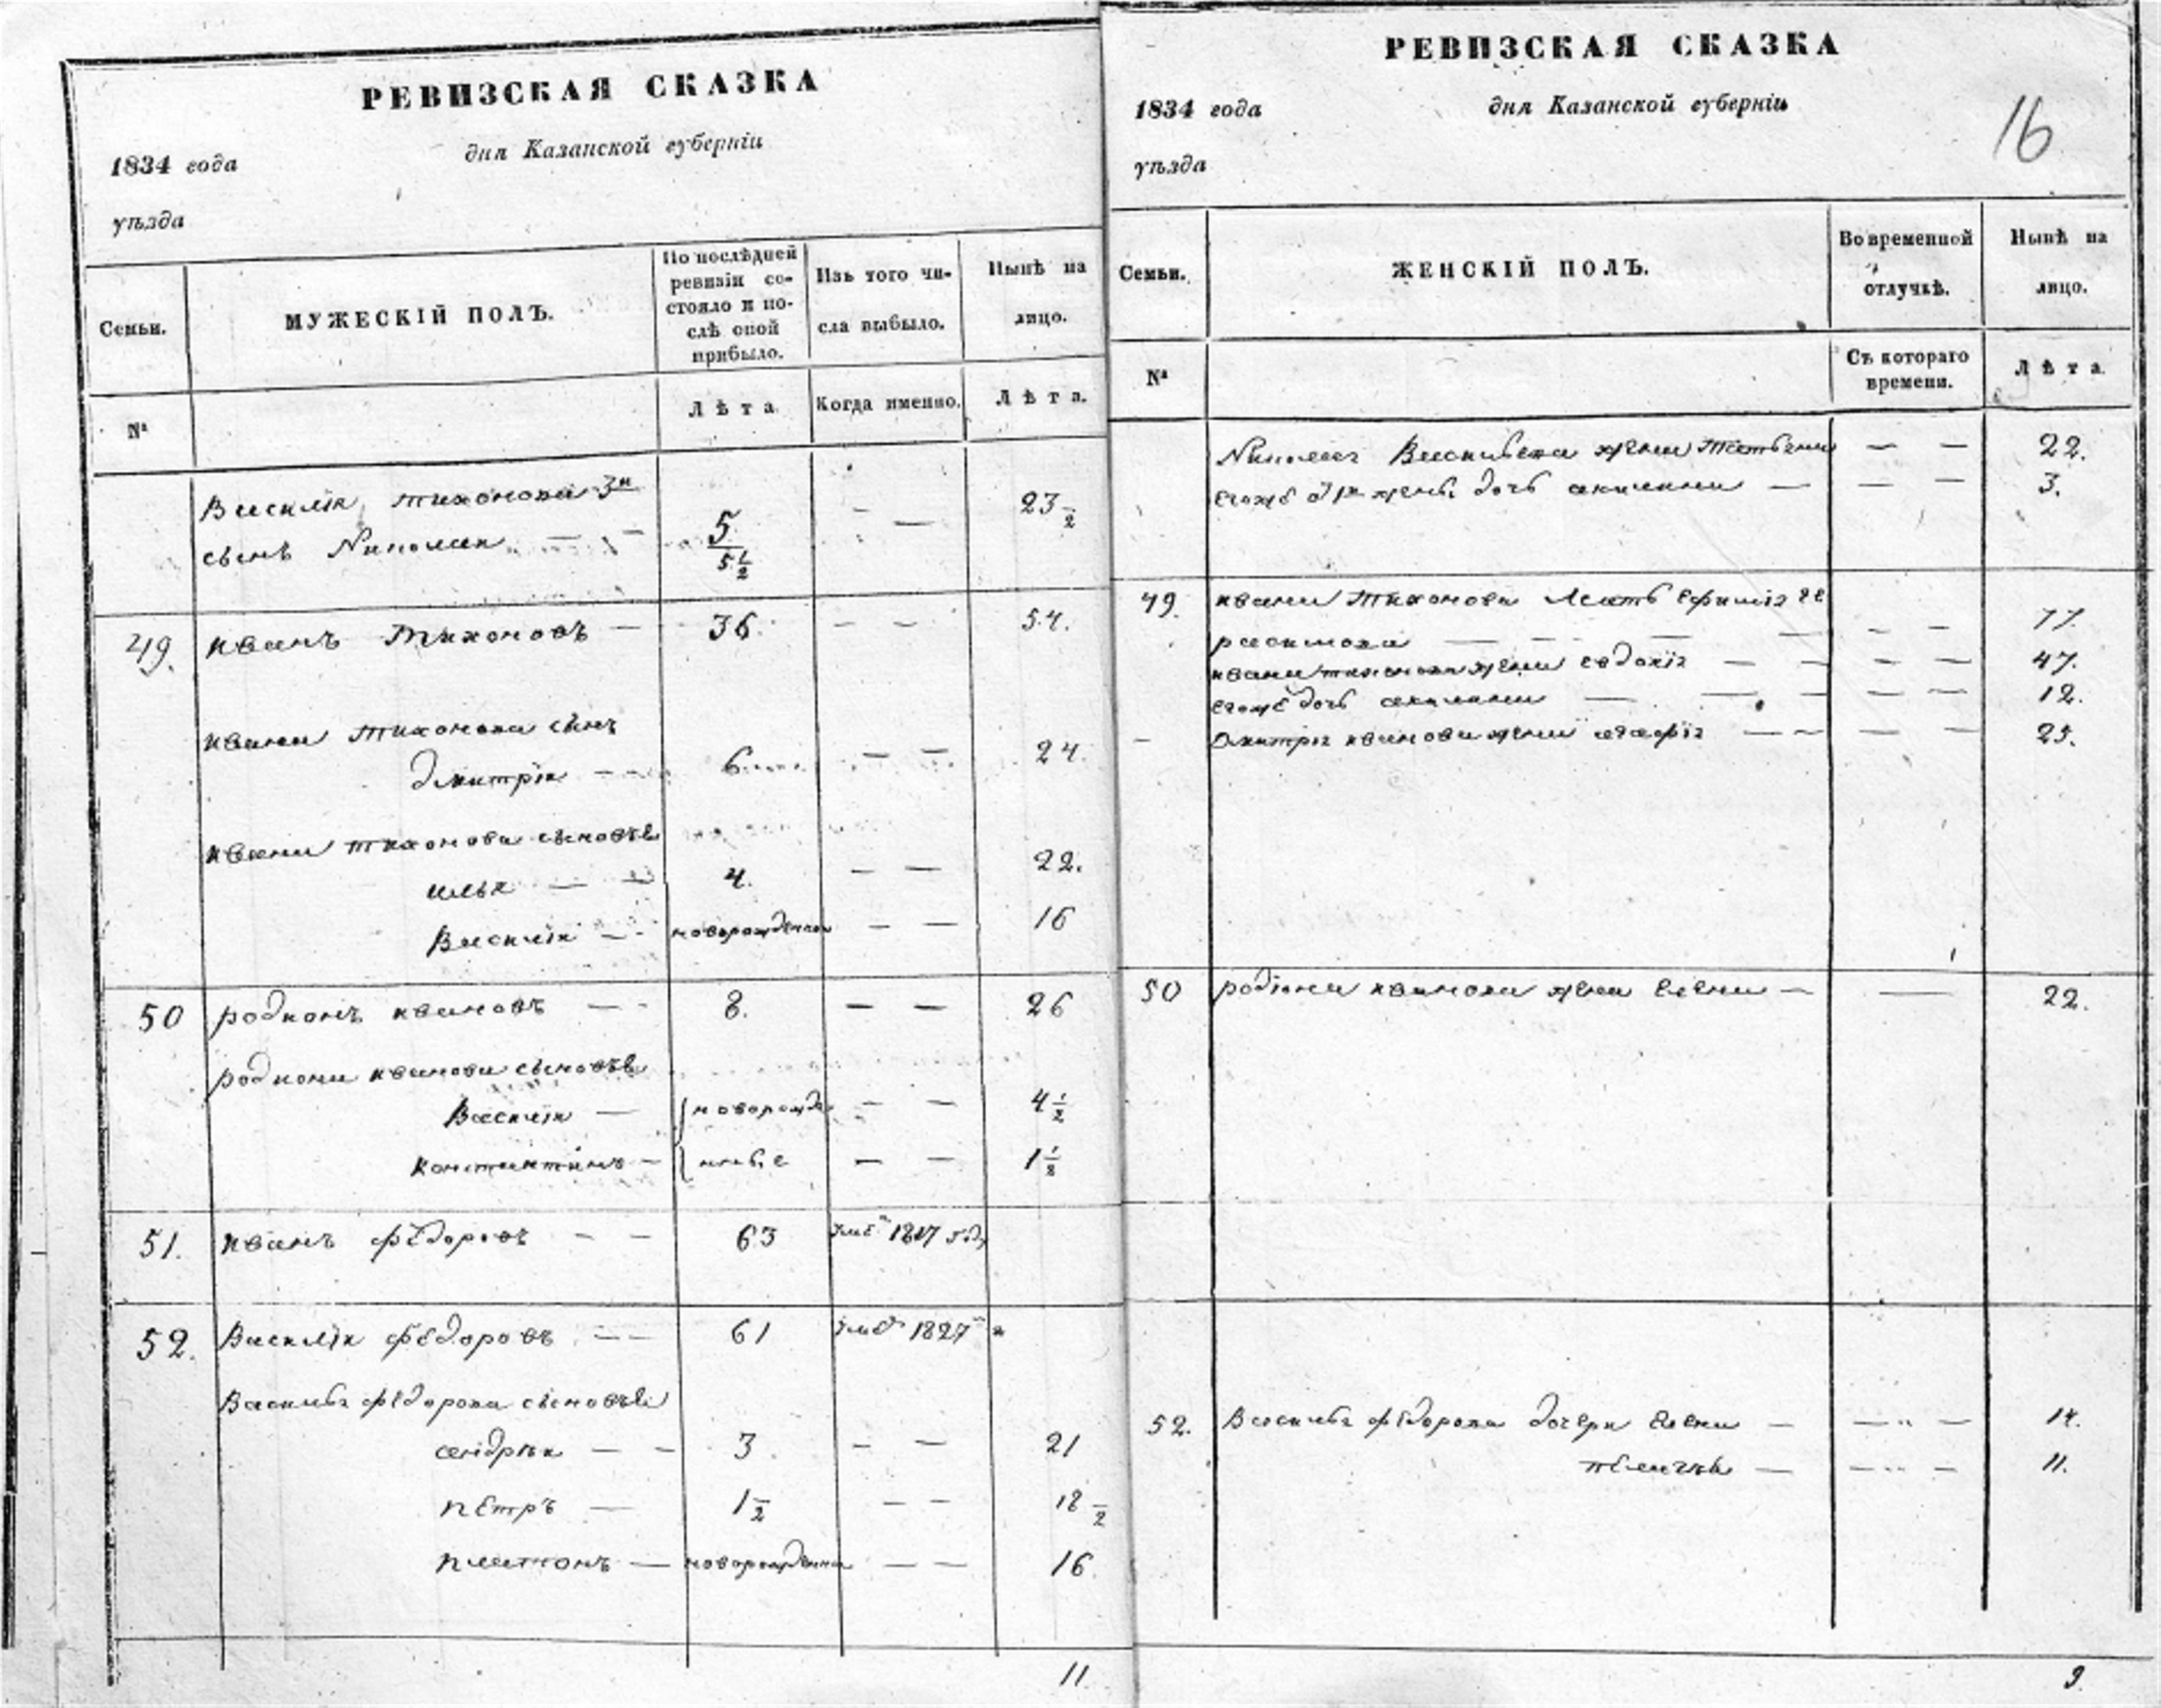 РЕВИЗСКАЯ СКАЗКА
1834 года
дня Казанской губерніи
уѣзда
Семьи.
МУЖЕСКІЙ ПОЛЪ.
По послѣдней ревизіи со-
стояло и по-
слѣ оной
прибыло.
Изъ того чи-
сла выбыло.
Нынѣ на
лицо.
№
Лѣта.
Когда именно.
Лѣта.
Василія Тихонова 3й
сынъ Николай 5 23
5 1/2
49. Иванъ Тихоновъ — 36. — — 54.
Ивана Тихонова сынъ
Дмитрій — 6 — — 24.
Ивана Тихонова сыновья
Илья — 4. — — 22.
Василій — новорожденной — — 16
50 Родионъ Ивановъ — 8. — — 26
Родиона Иванова сыновья
Василій — новорожден — — 4 1/2
Константинъ — ные — — 1 1/2
51. Иванъ Федоровъ — 63 1817 году
52. Василій Федоровъ — 61 1827
Василья Федорова сыновья
Андрей — 3 — — 21
Петръ — 1 1/2 — — 18
Платонъ — новорожденный — — 16
11
РЕВИЗСКАЯ СКАЗКА
1834 года
дня Казанской губерніи
16
уѣзда
Семьи.
ЖЕНСКІЙ ПОЛЪ.
Во временной
отлучкѣ.
Нынѣ на
лицо.
№
Съ котораго
времени.
Лѣта.
Николая Васильева жена Татьяна — — 22.
Его же жены дочь Акилина — — 3.
49. Ивана Тихонова мать Ефимія 77.
Ивана Тихонова жена Евдокія — — 47.
Его же дочь Акилина — — 12.
Дмитрія Иванова жена Агафія — — 25.
50 Родіона Иванова жена Елена — — 22.
52. Василья Федорова дочери Елена — — 14.
Пелагѣя — — 11.
9